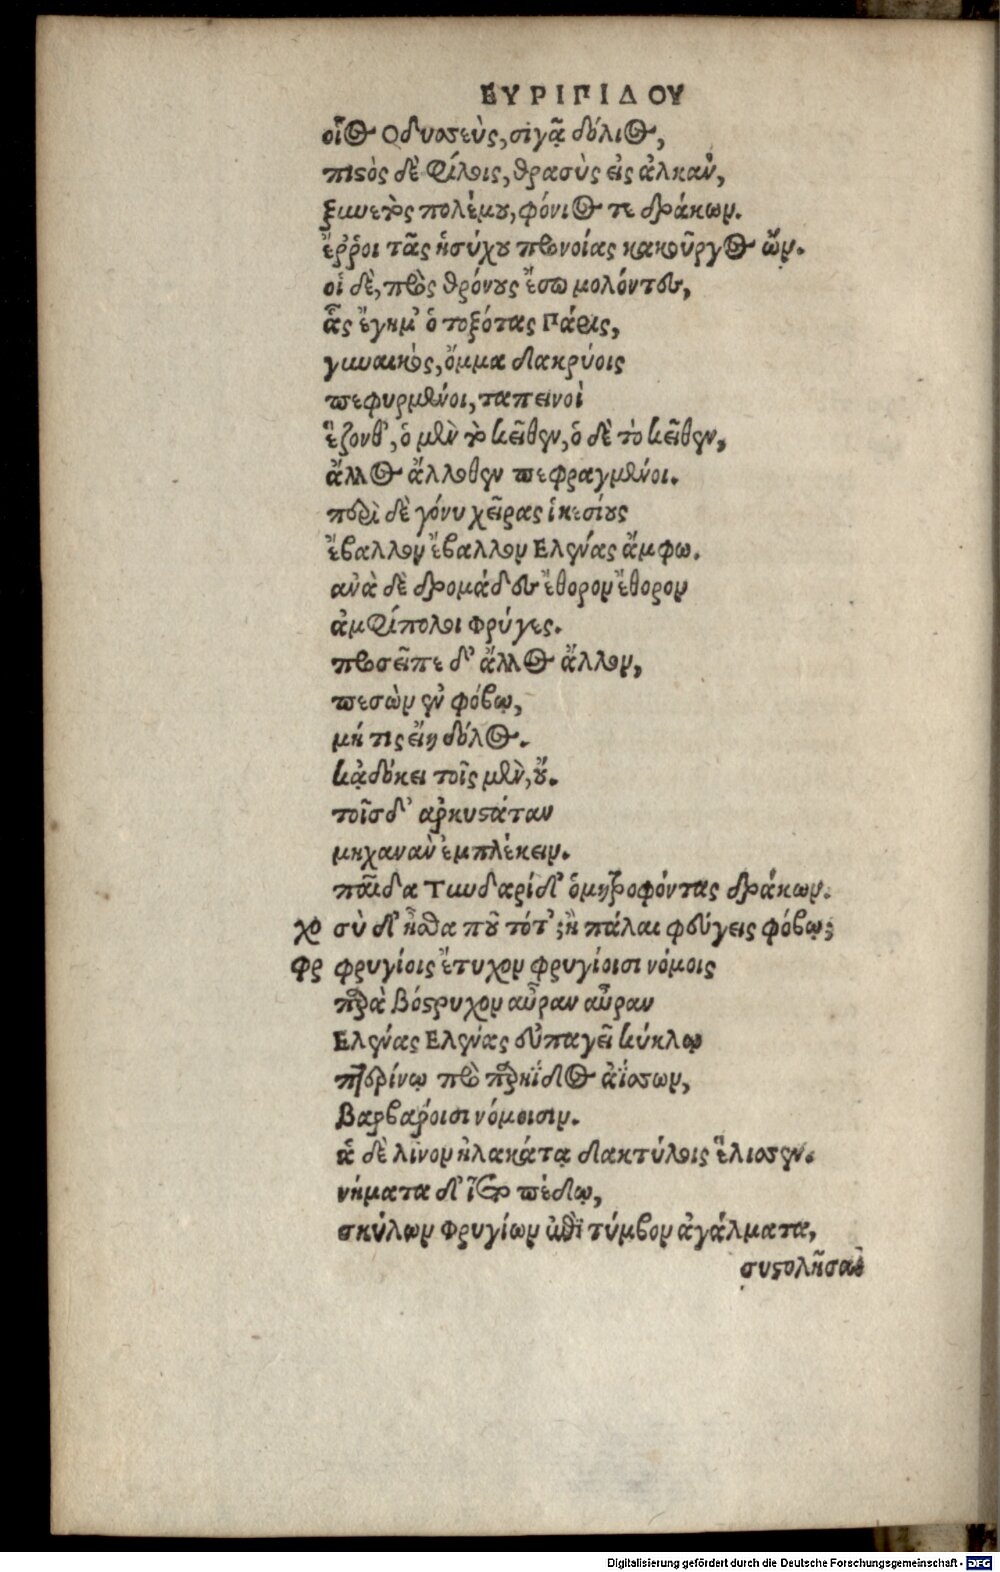 ΕΥΡΙΠΙΔΟΥ
οἷος Οδυσσεὺς, σιγᾷ δόλιος,
πιστὸς δὲ φίλοις, θρασὺς εἰς ἀλκὰν,
ξυνετὸς πολέμου, φόνιός τε δράκων.
ἔῤῥοι τᾶς ἡσύχου προνοίας κακοῦργος ὤν.
οἱ δὲ, πρὸς θρόνους ἔσω μολόντες,
ἃς ἔγημ' ὁ τοξότας Πάρις,
γυναικὸς, ὄμμα δακρύοις
πεφυρμένοι, ταπεινοὶ
ἕζονθ', ὁ μὲν τὸ κεῖθεν, ὁ δὲ τὸ κεῖθεν,
ἄλλος ἄλλοθεν πεφραγμένοι.
περὶ δὲ γόνυ χεῖρας ἱκεσίους
ἔβαλλον ἔβαλλον Ελένας ἄμφω.
ανὰ δὲ δρομάδες ἔθορον ἔθορον
ἀμφίπολοι Φρύγες.
προσεῖπε δ' ἄλλος ἄλλον,
πεσὼν ἐν φόβῳ,
μή τις εἴη δόλος.
κᾀδόκει τοῖς μὲν, οὔ.
τοῖς δ' αρκυστάταν
μηχανὰν ἐμπλέκειν.
παῖδα Τυνδαρίδ' ὁ μητροφόντας δράκων.
χο σὺ δ' ἦσθα ποῦ τότ'; ἢ πάλαι φεύγεις φόβῳ;
φρ φρυγίοις ἔτυχον φρυγίοισι νόμοις
παρὰ βόστρυχον αὖραν αὖραν
Ελένας Ελένας εὐπαγεῖ κύκλῳ
πτερίνῳ πρὸ παρηΐδος ἀΐσσων,
βαρβάροισι νόμοισιν.
ἁ δὲ λίνον ἠλακάτᾳ δακτύλοις ἕλισσεν.
νήματα δ' ἵετο πέδῳ,
σκύλων Φρυγίων ἐπὶ τύμβον ἀγάλματα,
συστολῆσαι
Digitalisierung gefördert durch die Deutsche Forschungsgemeinschaft - DFG